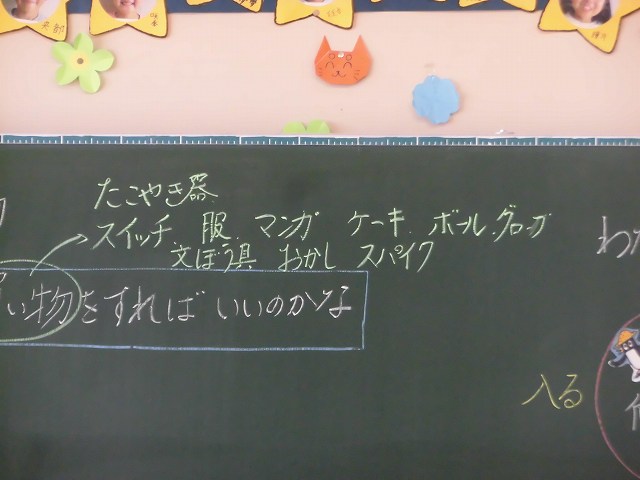 たこやき器
スイッチ 服 マンガ ケーキ ボール グローブ
文ぼう具 おかし スパイク
い物をすれば いいのかな
わか
入る